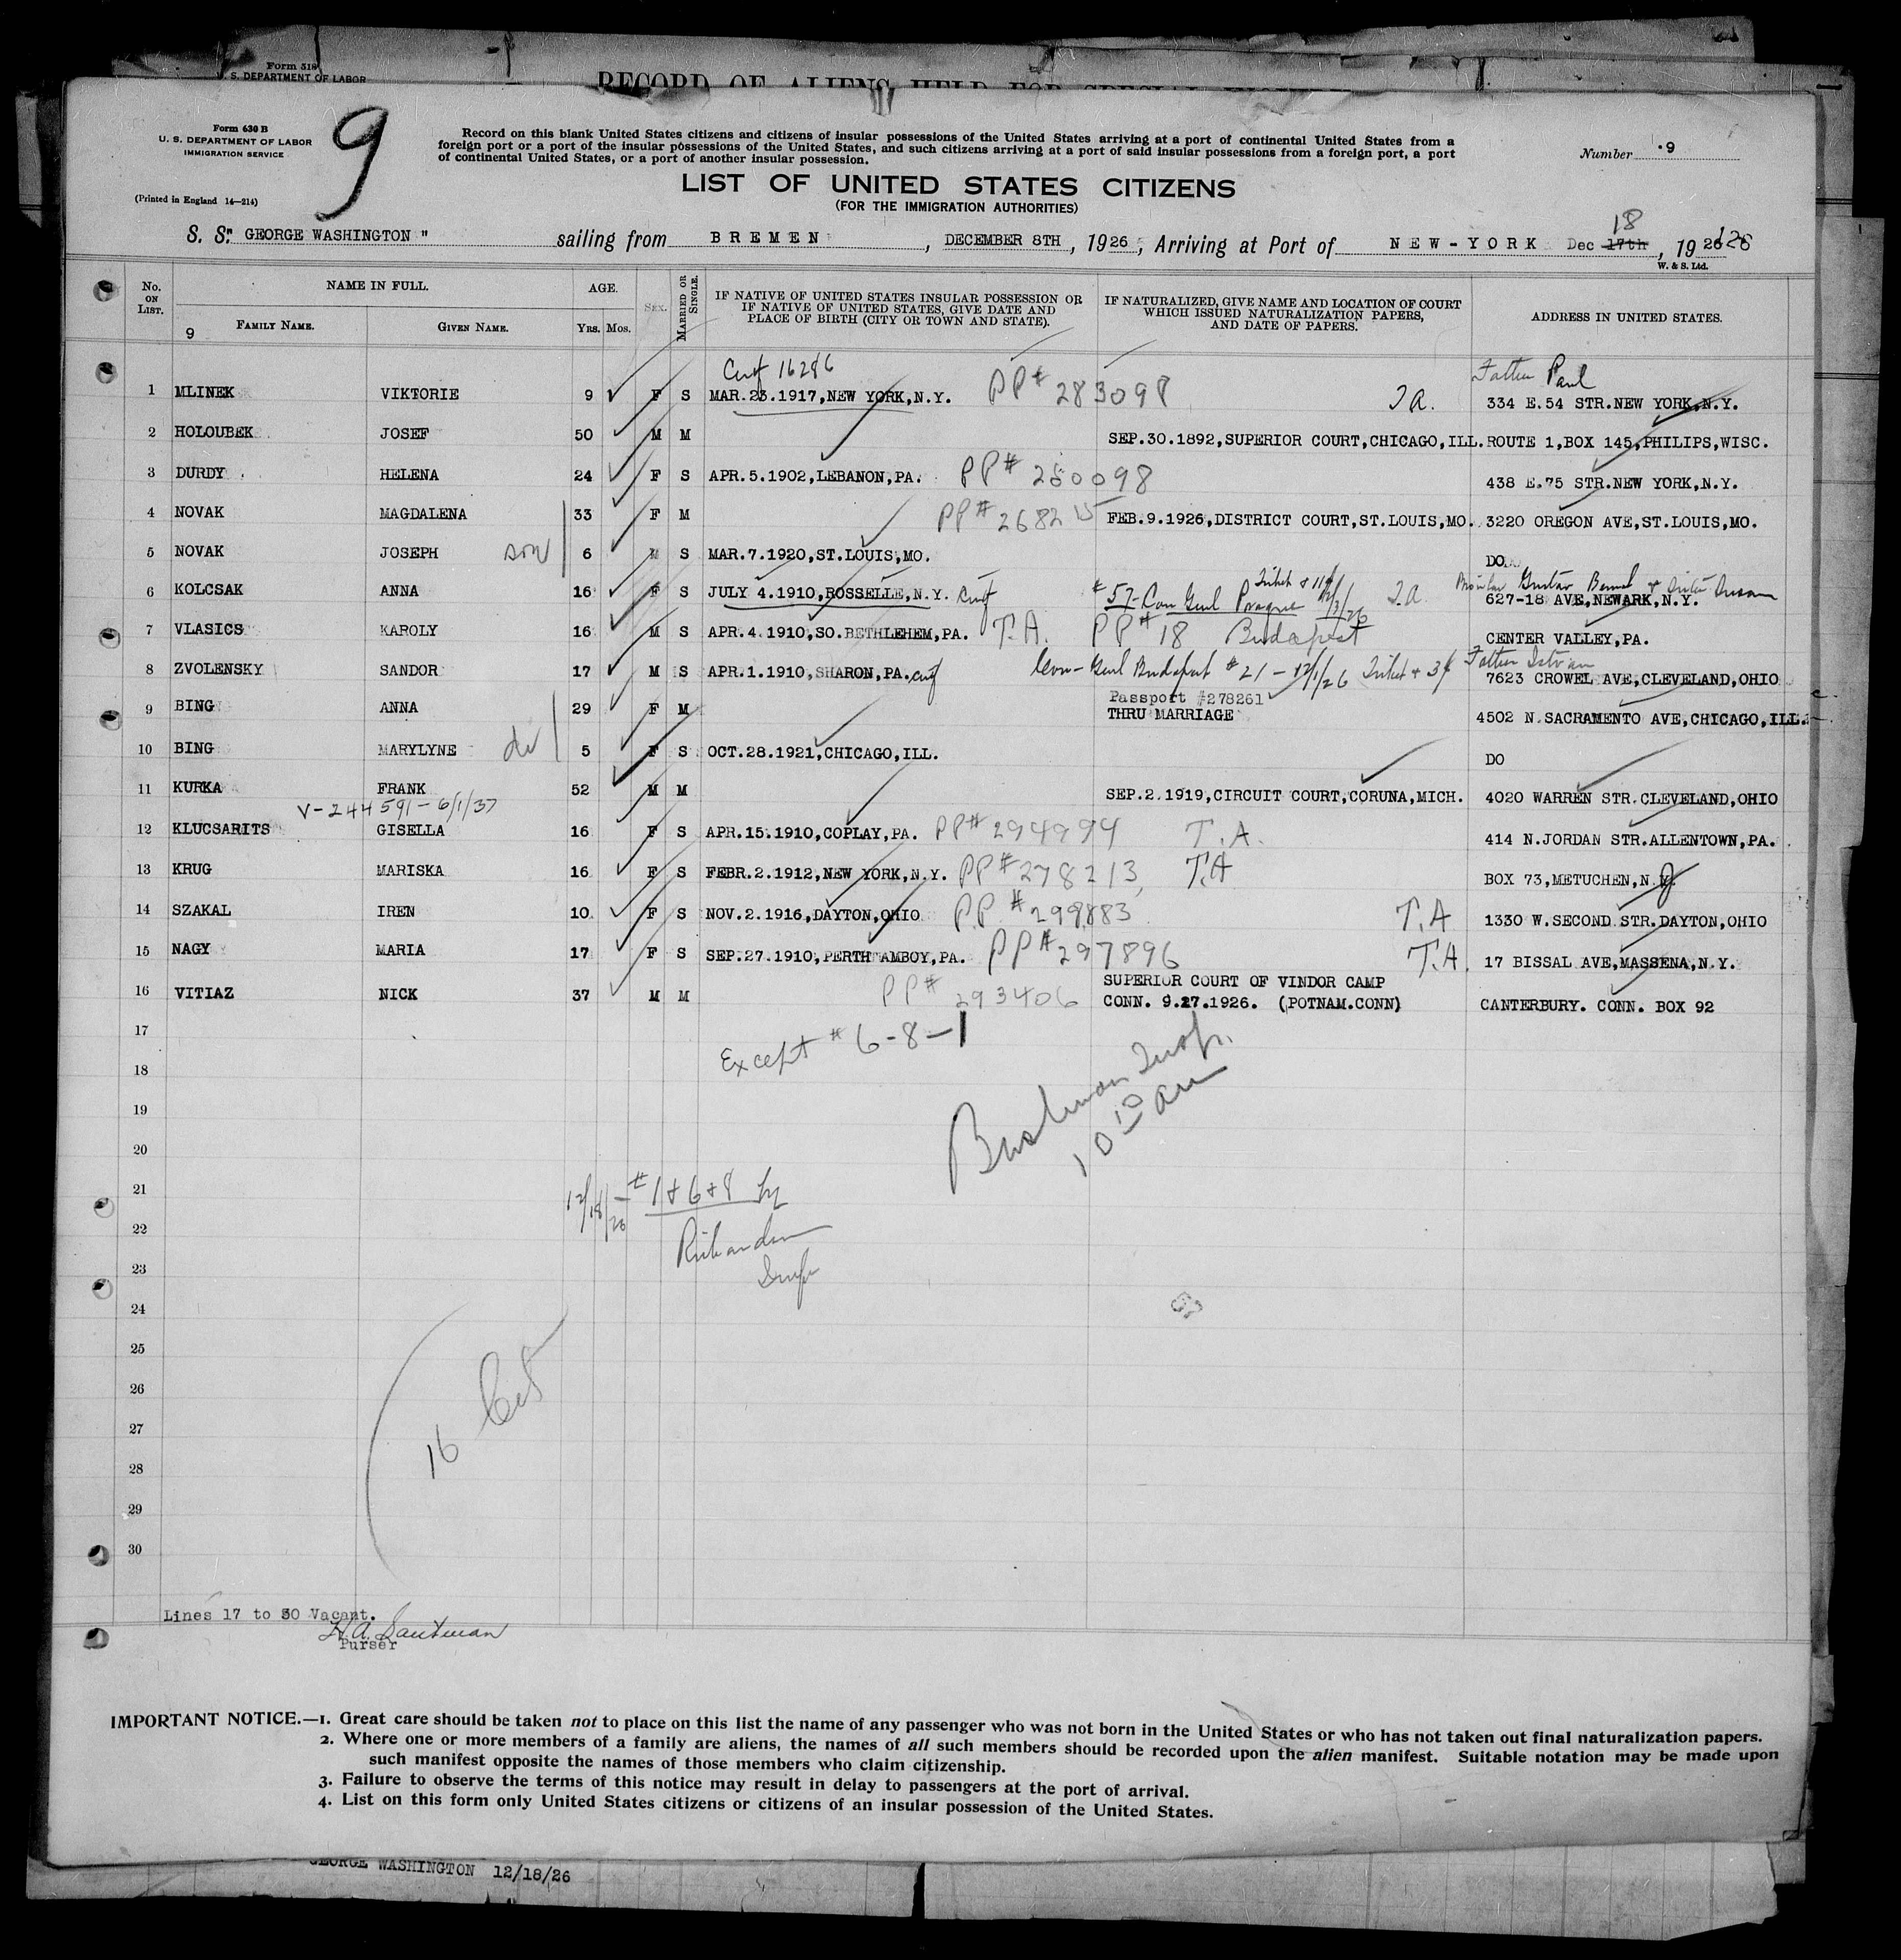 Form 518
U. S. DEPARTMENT OF LABOR
RECORD OF ALIENS HELD FOR SPECIAL
Form 630 B
U. S. DEPARTMENT OF LABOR
IMMIGRATION SERVICE
(Printed in England 14—214)
9
Record on this blank United States citizens and citizens of insular possessions of the United States arriving at a port of continental United States from a
foreign port or a port of the insular possessions of the United States, and such citizens arriving at a port of said insular possessions from a foreign port, a port
of continental United States, or a port of another insular possession.
Number 9
LIST OF UNITED STATES CITIZENS
(FOR THE IMMIGRATION AUTHORITIES)
18
S. S. " GEORGE WASHINGTON " sailing from BREMEN, DECEMBER 8TH, 1926, Arriving at Port of NEW-YORK Dec 17th, 1926
W. & S. Ltd.
No. ON LIST. NAME IN FULL. AGE. SEX. MARRIED OR SINGLE. IF NATIVE OF UNITED STATES INSULAR POSSESSION OR IF NATIVE OF UNITED STATES, GIVE DATE AND PLACE OF BIRTH (CITY OR TOWN AND STATE). IF NATURALIZED, GIVE NAME AND LOCATION OF COURT WHICH ISSUED NATURALIZATION PAPERS, AND DATE OF PAPERS. ADDRESS IN UNITED STATES.
9 FAMILY NAME. GIVEN NAME. YRS. MOS.
Cert 16286 Father Paul
1 MLINEK VIKTORIE 9 F S MAR.23.1917,NEW YORK,N.Y. PP# 283098 T.A. 334 E.54 STR.NEW YORK,N.Y.
2 HOLOUBEK JOSEF 50 M M SEP.30.1892,SUPERIOR COURT,CHICAGO,ILL. ROUTE 1,BOX 145,PHILIPS,WISC.
3 DURDY HELENA 24 F S APR.5.1902,LEBANON,PA. PP# 280098 438 E.75 STR.NEW YORK,N.Y.
4 NOVAK MAGDALENA 33 F M PP# 268215 FEB.9.1926,DISTRICT COURT,ST.LOUIS,MO. 3220 OREGON AVE,ST.LOUIS,MO.
5 NOVAK JOSEPH son 6 M S MAR.7.1920,ST.LOUIS,MO. DO.
6 KOLCSAK ANNA 16 F S JULY 4.1910,ROSSELLE,N.Y. Cert #57 Con Genl Prague T.A. 627-18 AVE,NEWARK,N.Y.
7 VLASICS KAROLY 16 M S APR.4.1910,SO.BETHLEHEM,PA. T.A. PP# 18 Budapest CENTER VALLEY,PA.
8 ZVOLENSKY SANDOR 17 M S APR.1.1910,SHARON,PA. Cert Con-Genl Budapest #21-12/1/26 Father Istvan 7623 CROWEL AVE,CLEVELAND,OHIO
Passport #278261
9 BING ANNA 29 F M THRU MARRIAGE 4502 N.SACRAMENTO AVE,CHICAGO,ILL.
10 BING MARYLYNE 5 F S OCT.28.1921,CHICAGO,ILL. DO
11 KURKA FRANK 52 M M SEP.2.1919,CIRCUIT COURT,CORUNA,MICH. 4020 WARREN STR.CLEVELAND,OHIO
V-244591-6/1/37
12 KLUCSARITS GISELLA 16 F S APR.15.1910,COPLAY,PA. PP# 294994 T.A. 414 N.JORDAN STR.ALLENTOWN,PA.
13 KRUG MARISKA 16 F S FEBR.2.1912,NEW YORK,N.Y. PP# 278213, T.A BOX 73,METUCHEN,N.J.
14 SZAKAL IREN 10 F S NOV.2.1916,DAYTON,OHIO PP# 299883 T.A 1330 W.SECOND STR.DAYTON,OHIO
15 NAGY MARIA 17 F S SEP.27.1910,PERTH AMBOY,PA. PP# 297896 T.A. 17 BISSAL AVE,MASSENA,N.Y.
SUPERIOR COURT OF VINDOR CAMP
16 VITIAZ NICK 37 M M PP# 293406 CONN. 9.27.1926. (POTNAM.CONN) CANTERBURY. CONN. BOX 92
17
Except # 6-8-1
18
19
10 10 am
20
21
12/18/26 - # 1 & 6 & 8 by
22
Richardson
23
Insp
24
25
26
16 Cit
27
28
29
30
Lines 17 to 30 Vacant.
Purser
IMPORTANT NOTICE.—1. Great care should be taken not to place on this list the name of any passenger who was not born in the United States or who has not taken out final naturalization papers.
2. Where one or more members of a family are aliens, the names of all such members should be recorded upon the alien manifest. Suitable notation may be made upon
such manifest opposite the names of those members who claim citizenship.
3. Failure to observe the terms of this notice may result in delay to passengers at the port of arrival.
4. List on this form only United States citizens or citizens of an insular possession of the United States.
GEORGE WASHINGTON 12/18/26